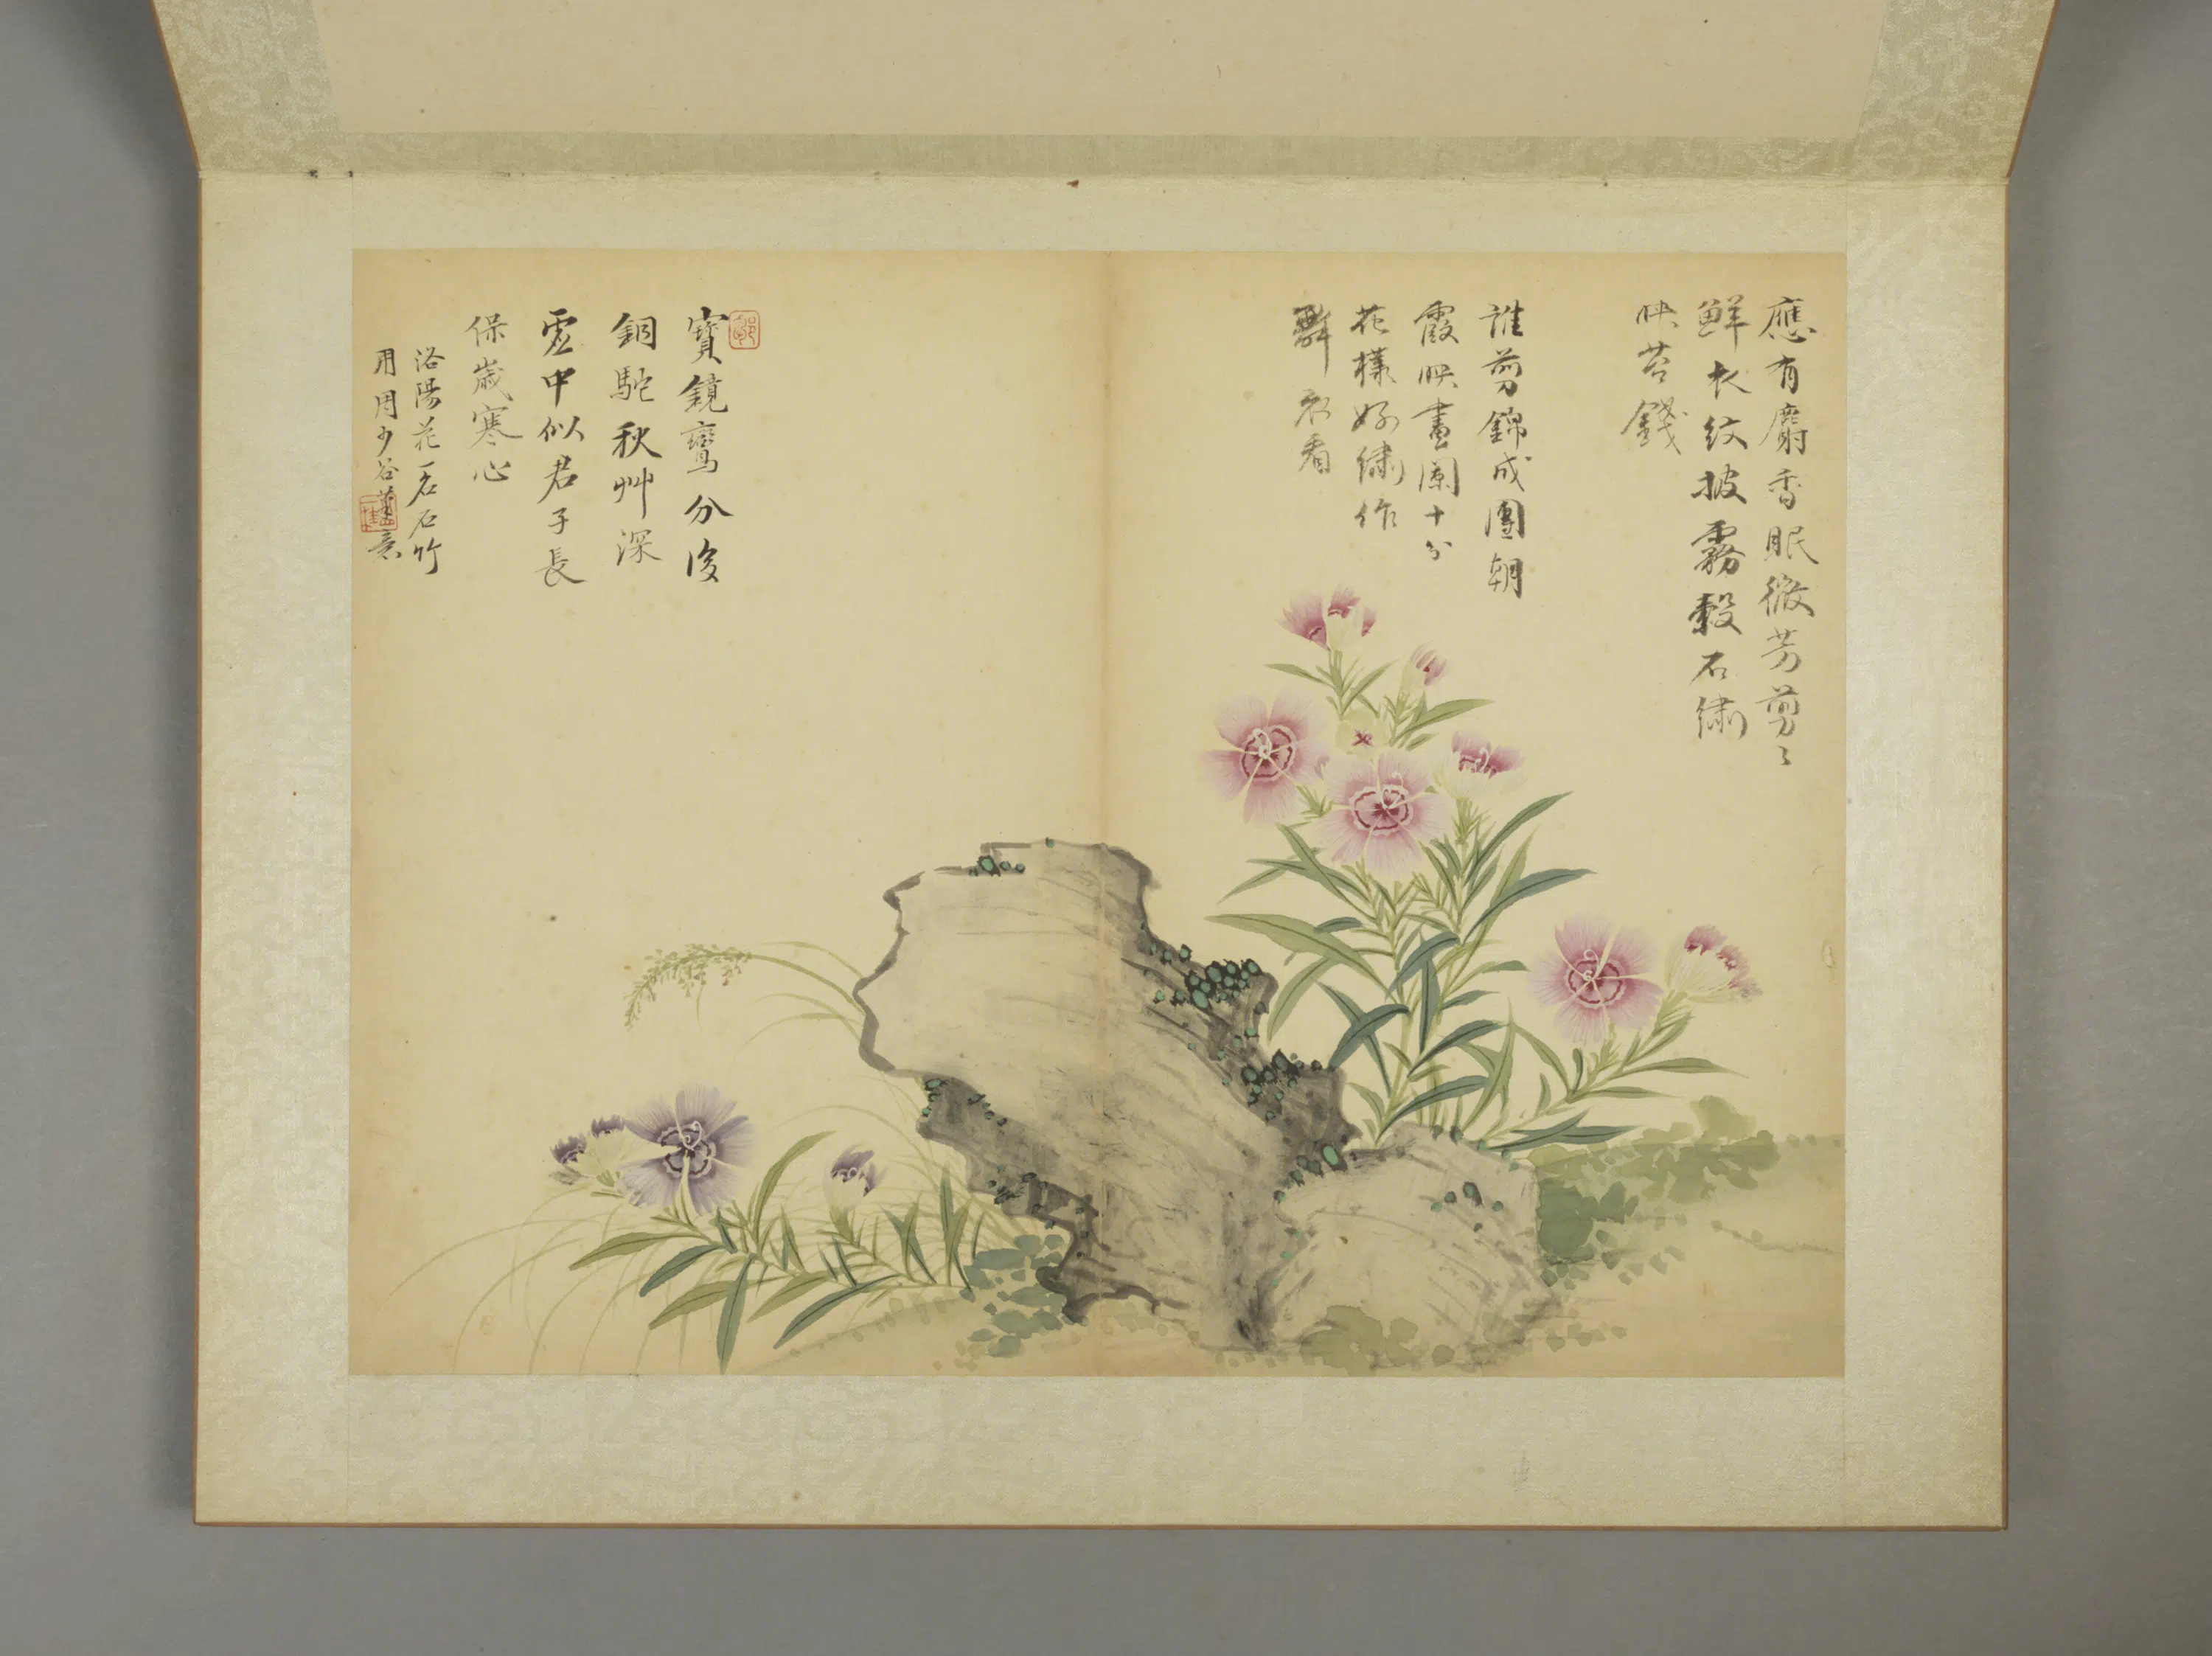 應有麝香眠微芳剪〻
鮮衣紋披霧縠石繡
映苔錢
誰剪錦成團朝
霞映畫闌十分
花樣好繡作
看
寶鏡鸞分後
銅駝秋艸深
虛中似君子長
保歲寒心
洛陽花一名石竹
用周少谷筆意